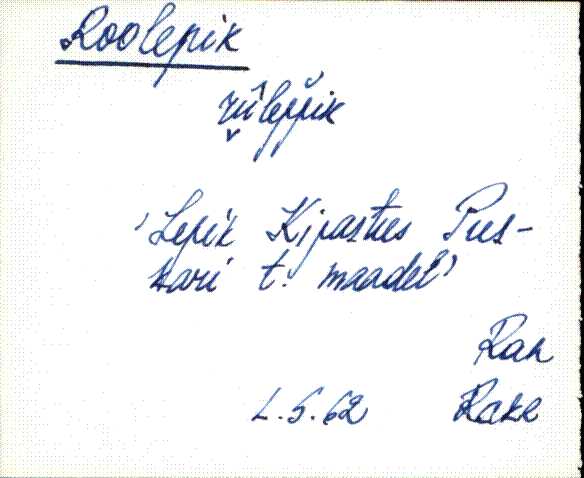 Roolepik
rûlep̆pik
'Lepik Kipastus Pus-
kari t. maadel'
Ran
L.S.62 Rake